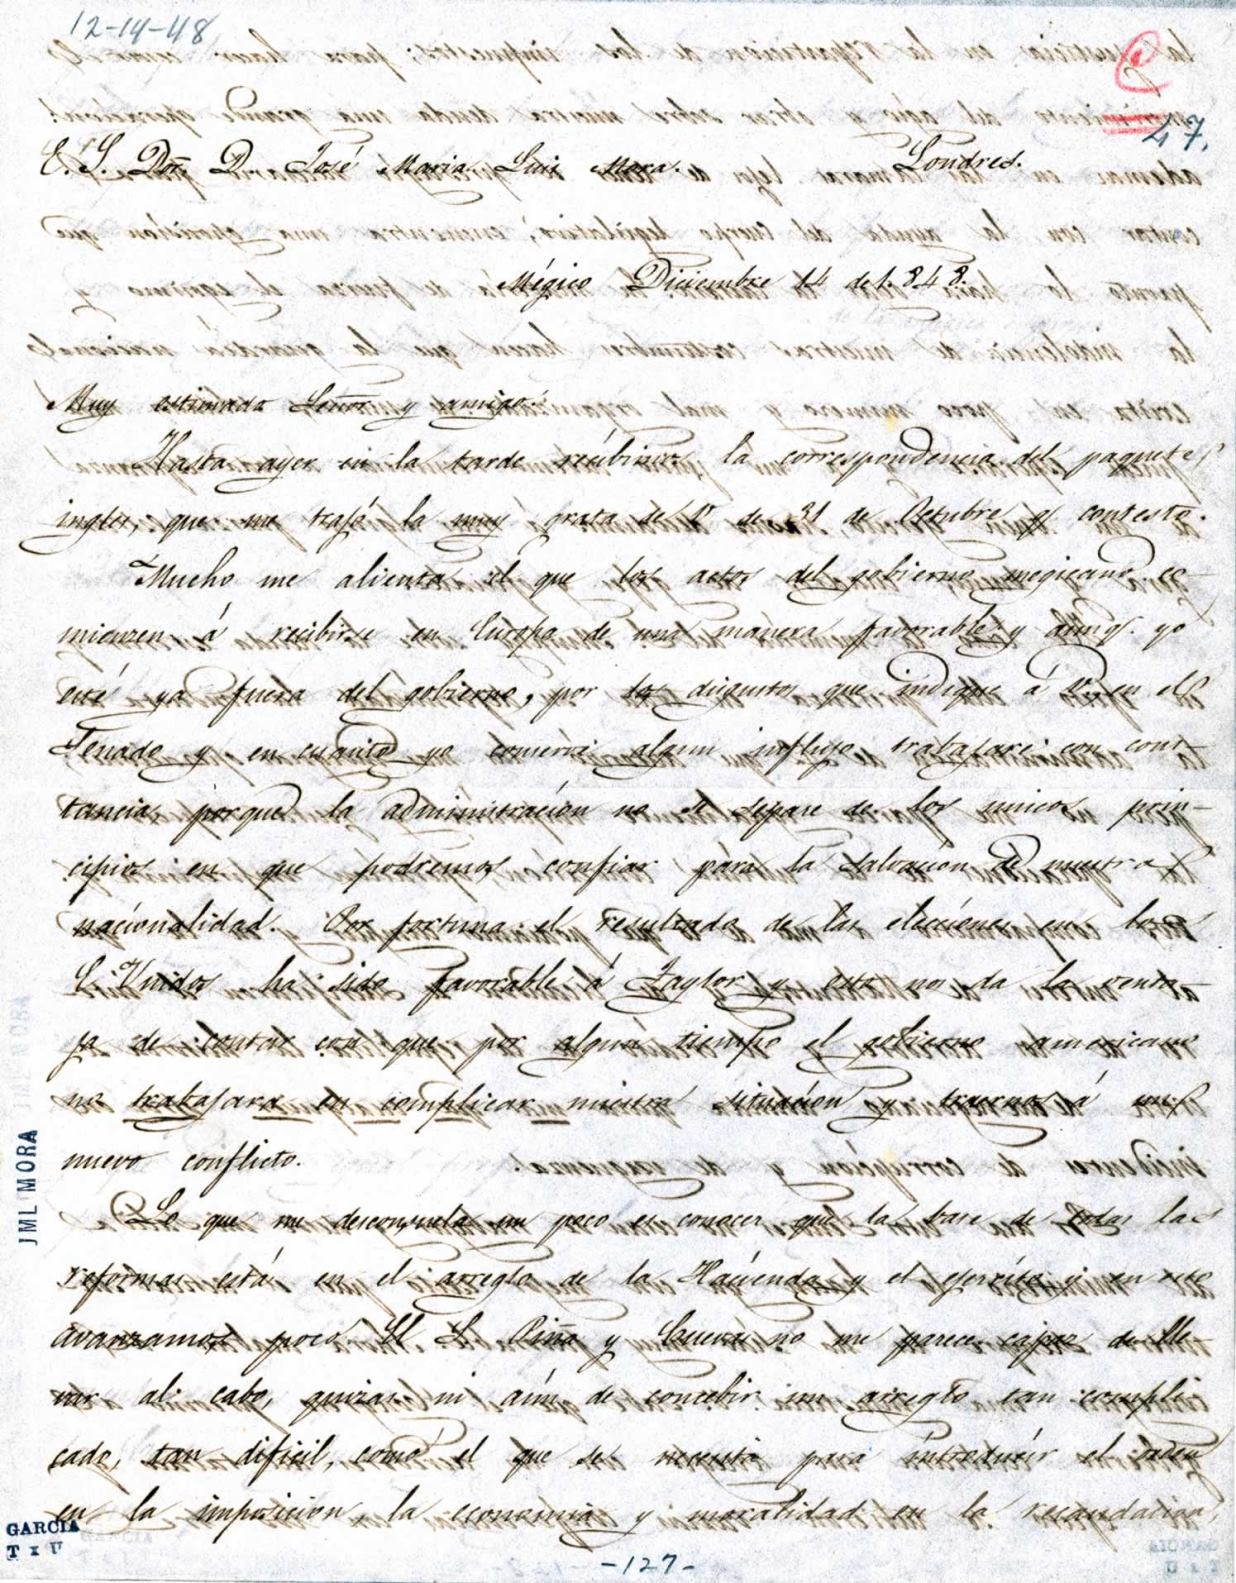 12-14-48
47.
E. S. Don D. José Maria Luis Mora. Londres.
Mégico Diciembre 14 de 1.848.
Muy estimado Señor y amigo.
Hasta ayer en la tarde recibimos la correspondencia del paquete
ingles, que me trajó la muy grata de V. de 31 de Octubre q. contesto.
Mucho me alienta el que los actos del gobierno megicano co-
miencen á recibirse en Europa de una manera favorable y aunq. yo
esté ya fuera del gobierno, por los disgustos que indiqué á V., en el
Senado y en cuanto yo conserve algun influjo trabajaré con cons-
tancia, porque la administracion no se separe de los unicos prin-
cipios en que podremos confiar para la salvacion de nuestra
nacionalidad. Por fortuna el resultado de las elecciones en los
E. Unidos ha sido favorable á Taylor y esto nos da la venta-
ja de contar con que por algun tiempo el gobierno americano
no trabajara en complicar nuestra situacion y traernos á un
nuevo conflicto.
Lo que me desconsuela un poco es conocer que la base de todas las
reformas está en el arreglo de la Hacienda y el ejercito y en esto
avanzamos poco. El S. Piña y Cuevas no me parece capaz de lle-
var al cabo, quizas ni aún de concebir un arreglo tan compli-
cado, tan dificil, como el que se necesita para introducir el orden
en la imposicion, la economia y moralidad en la recaudacion,
JML MORA
GARCIA
-127-